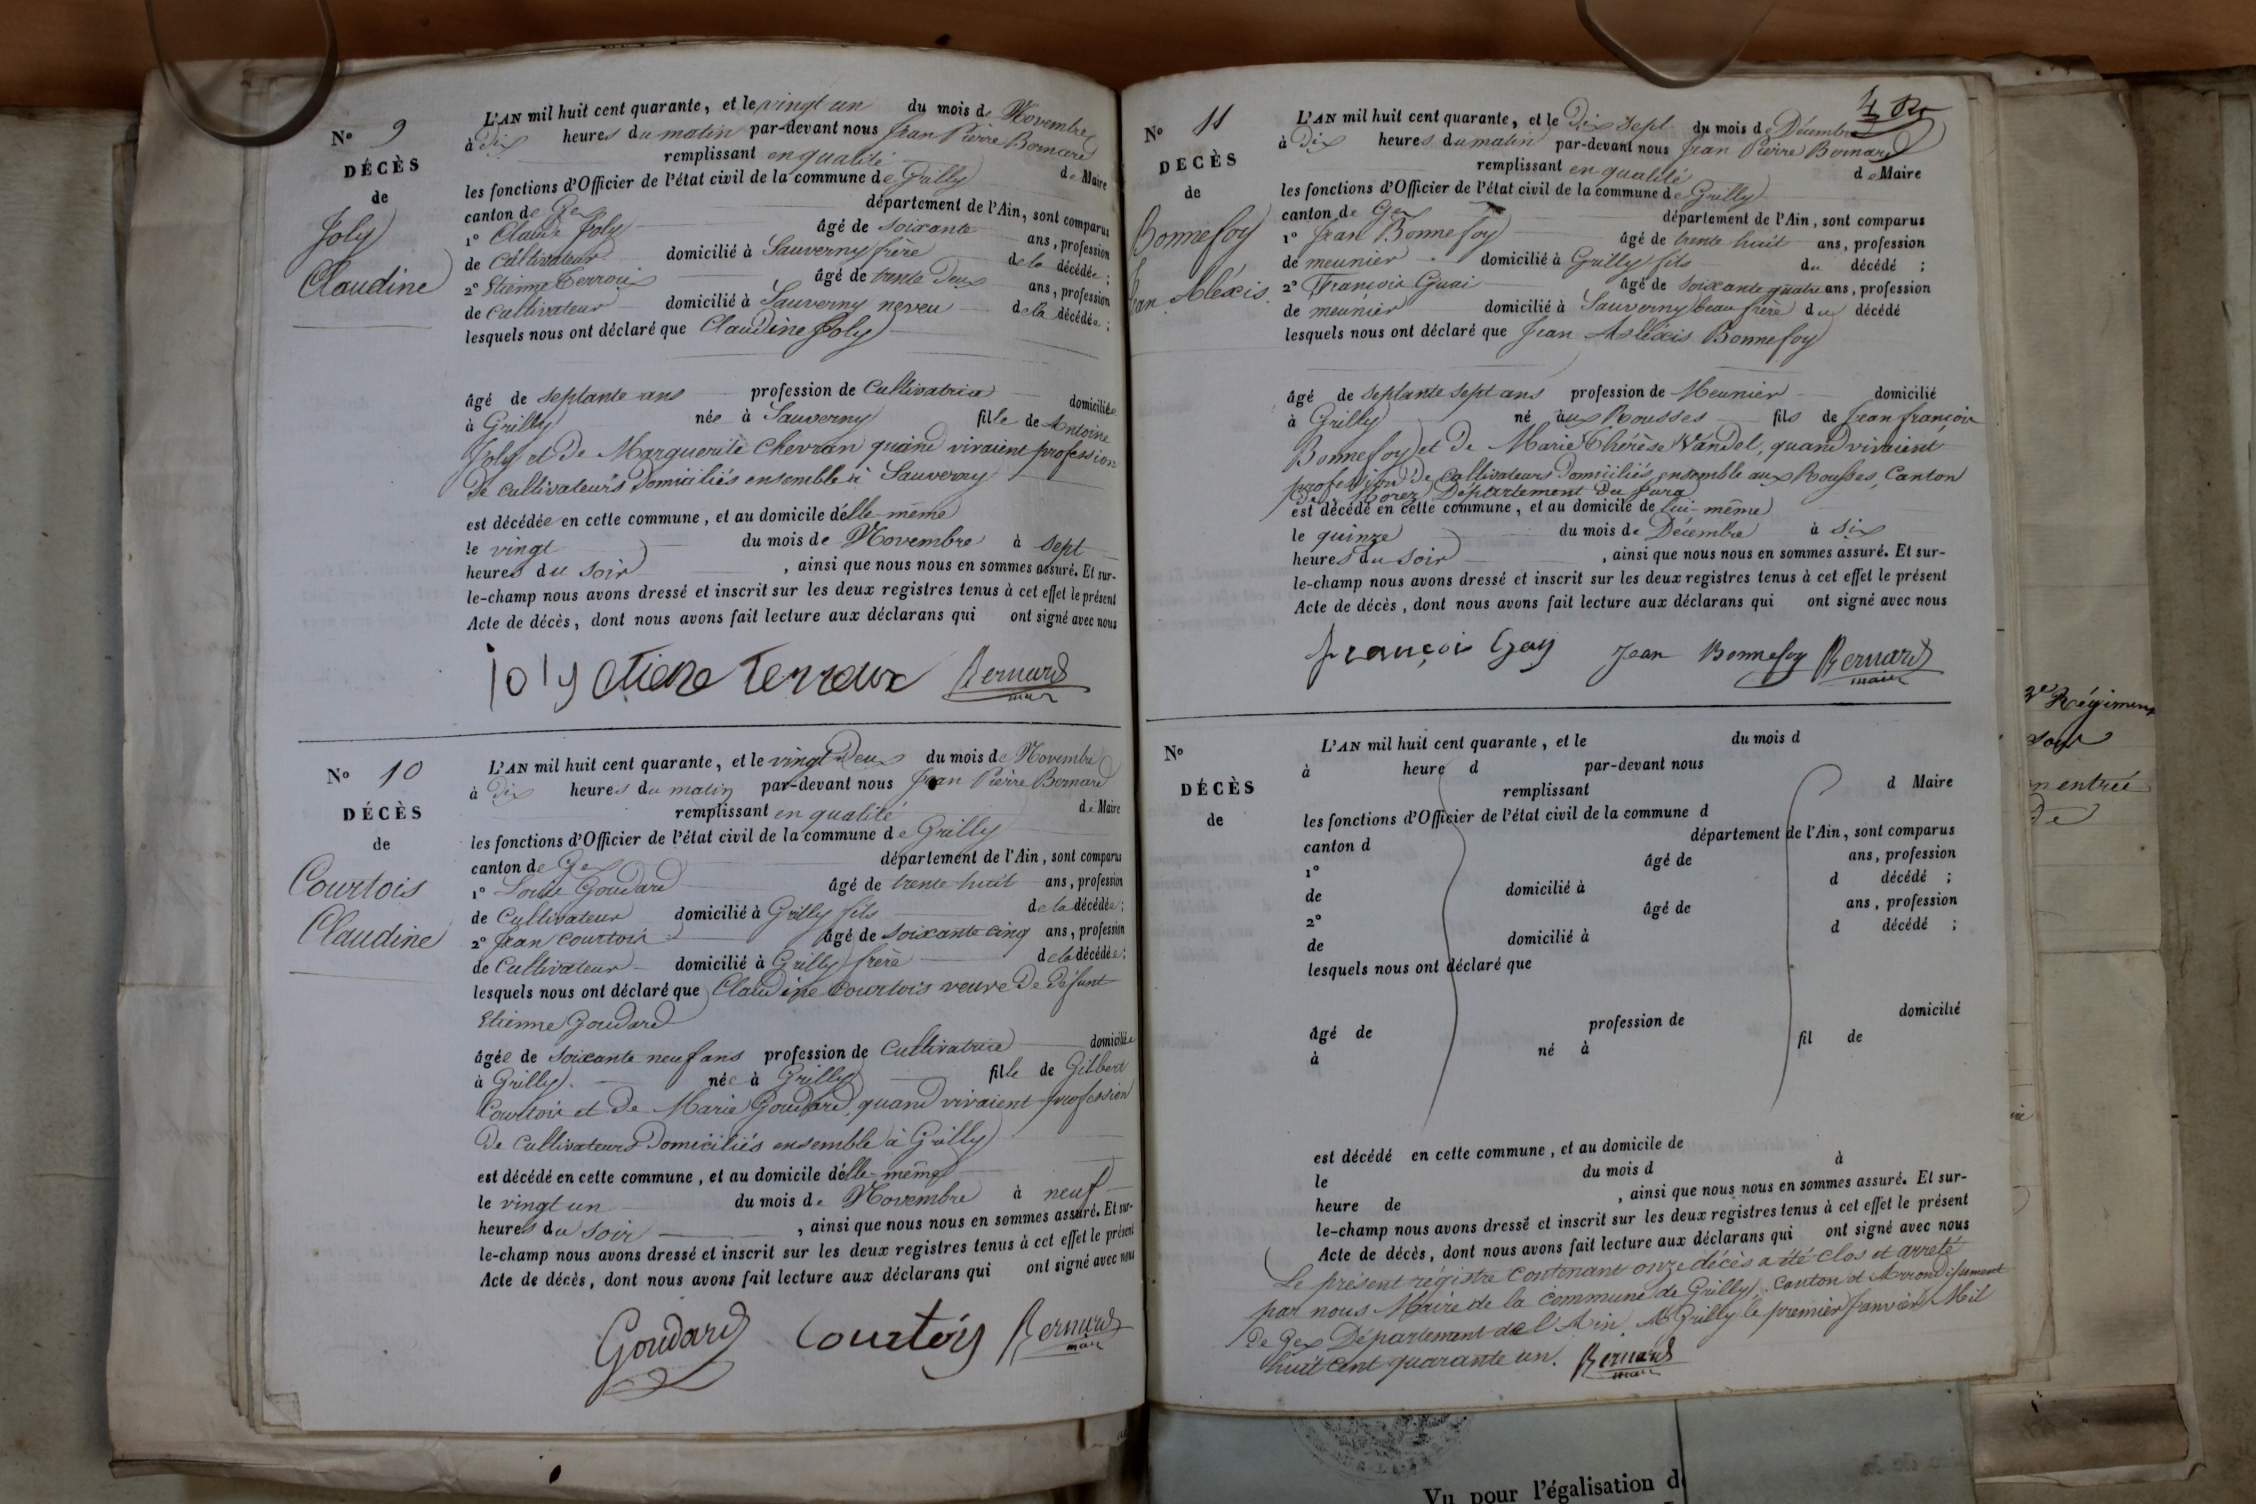 N° 9
DÉCÈS
de
Joly
Claudine
L'AN mil huit cent quarante, et le vingt un du mois de Novembre
à dix heures du matin par-devant nous Jean Pierre Bernard
remplissant en qualité de Maire
les fonctions d'Officier de l'état civil de la commune de Grilly
canton de Gex département de l'Ain, sont comparus
1° Claude Joly âgé de soixante ans, profession
de Cultivateur domicilié à Sauverny frère de la décédée;
2° Etienne Terroux âgé de trente deux ans, profession
de Cultivateur domicilié à Sauverny neveu de la décédée;
lesquels nous ont déclaré que Claudine Joly
âgé de septante ans profession de Cultivatrice domiciliée
à Grilly née à Sauverny fille de Antoine
Joly et de Marguerite Chevran quand vivaient profession
de cultivateurs domiciliés ensemble à Sauverny
est décédée en cette commune, et au domicile d'élle-même
le vingt du mois de Novembre à sept
heures du soir, ainsi que nous nous en sommes assuré. Et sur-
le-champ nous avons dressé et inscrit sur les deux registres tenus à cet effet le présent
Acte de décès, dont nous avons fait lecture aux déclarans qui ont signé avec nous
joly etiene Terroux Bernard
maire
N° 10
DÉCÈS
de
Courtois
Claudine
L'AN mil huit cent quarante, et le vingt Deux du mois de Novembre
à dix heures du matin par-devant nous Jean Pierre Bernard
remplissant en qualité de Maire
les fonctions d'Officier de l'état civil de la commune de Grilly
canton de Gex département de l'Ain, sont comparus
1° Louis Goudard âgé de trente huit ans, profession
de Cultivateur domicilié à Grilly fils de la décédée;
2° Jean Courtois âgé de soixante cinq ans, profession
de Cultivateur domicilié à Grilly frère de la décédée;
lesquels nous ont déclaré que Claudine Courtois veuve de défunt
Etienne Goudard
âgée de soixante neuf ans profession de Cultivatrice domiciliée
à Grilly née à Grilly fille de Gilbert
Courtois et de Marie Goudard, quand vivaient profession
de Cultivateurs domiciliés ensemble à Grilly
est décédé en cette commune, et au domicile d'élle-même
le vingt un du mois de Novembre à neuf
heures du soir, ainsi que nous nous en sommes assuré. Et sur-
le-champ nous avons dressé et inscrit sur les deux registres tenus à cet effet le présent
Acte de décès, dont nous avons fait lecture aux déclarans qui ont signé avec nous
Goudard Courtois Bernard
maire
N° 11
DÉCÈS
de
Bonnefoy
Jean Aléxis
L'AN mil huit cent quarante, et le Dix sept du mois de Décembre
à Dix heures du matin par-devant nous Jean Pierre Bernard
remplissant en qualité de Maire
les fonctions d'Officier de l'état civil de la commune de Grilly
canton de Gex département de l'Ain, sont comparus
1° Jean Bonnefoy âgé de trente huit ans, profession
de meunier domicilié à Grilly fils du décédé;
2° François Guai âgé de soixante quatre ans, profession
de meunier domicilié à Sauverny beau frère du décédé
lesquels nous ont déclaré que Jean Aléxis Bonnefoy
âgé de septante sept ans profession de Meunier domicilié
à Grilly né aux Rousses fils de Jean françois
Bonnefoy et de Marie Thérèse Vandel, quand vivaient
profession de Cultivateurs domiciliés ensemble aux Rousses, Canton
de Morez Département du Jura
est décédé en cette commune, et au domicile de Lui-même
le quinze du mois de Décembre à Six
heures du soir, ainsi que nous nous en sommes assuré. Et sur-
le-champ nous avons dressé et inscrit sur les deux registres tenus à cet effet le présent
Acte de décès, dont nous avons fait lecture aux déclarans qui ont signé avec nous
françois Gay Jean Bonnefoy Bernard
maire
N°
DÉCÈS
de
L'AN mil huit cent quarante, et le du mois d
à heure d par-devant nous
remplissant d Maire
les fonctions d'Officier de l'état civil de la commune d
canton d département de l'Ain, sont comparus
1° âgé de ans, profession
de domicilié à d décédé;
2° âgé de ans, profession
de domicilié à d décédé;
lesquels nous ont déclaré que
âgé de profession de domicilié
à né à fil de
est décédé en cette commune, et au domicile de
le du mois d à
heure de, ainsi que nous nous en sommes assuré. Et sur-
le-champ nous avons dressé et inscrit sur les deux registres tenus à cet effet le présent
Acte de décès, dont nous avons fait lecture aux déclarans qui ont signé avec nous
Le présent régistre contenant onze décès a été clos et arreté
par nous Maire de la commune de Grilly, Canton et Arrondissement
de Gex Département de l'Ain. A Grilly le premier Janvier Mil
huit cent quarante un. Bernard
maire
Régiment
entrée
de
Vu pour l'égalisation d